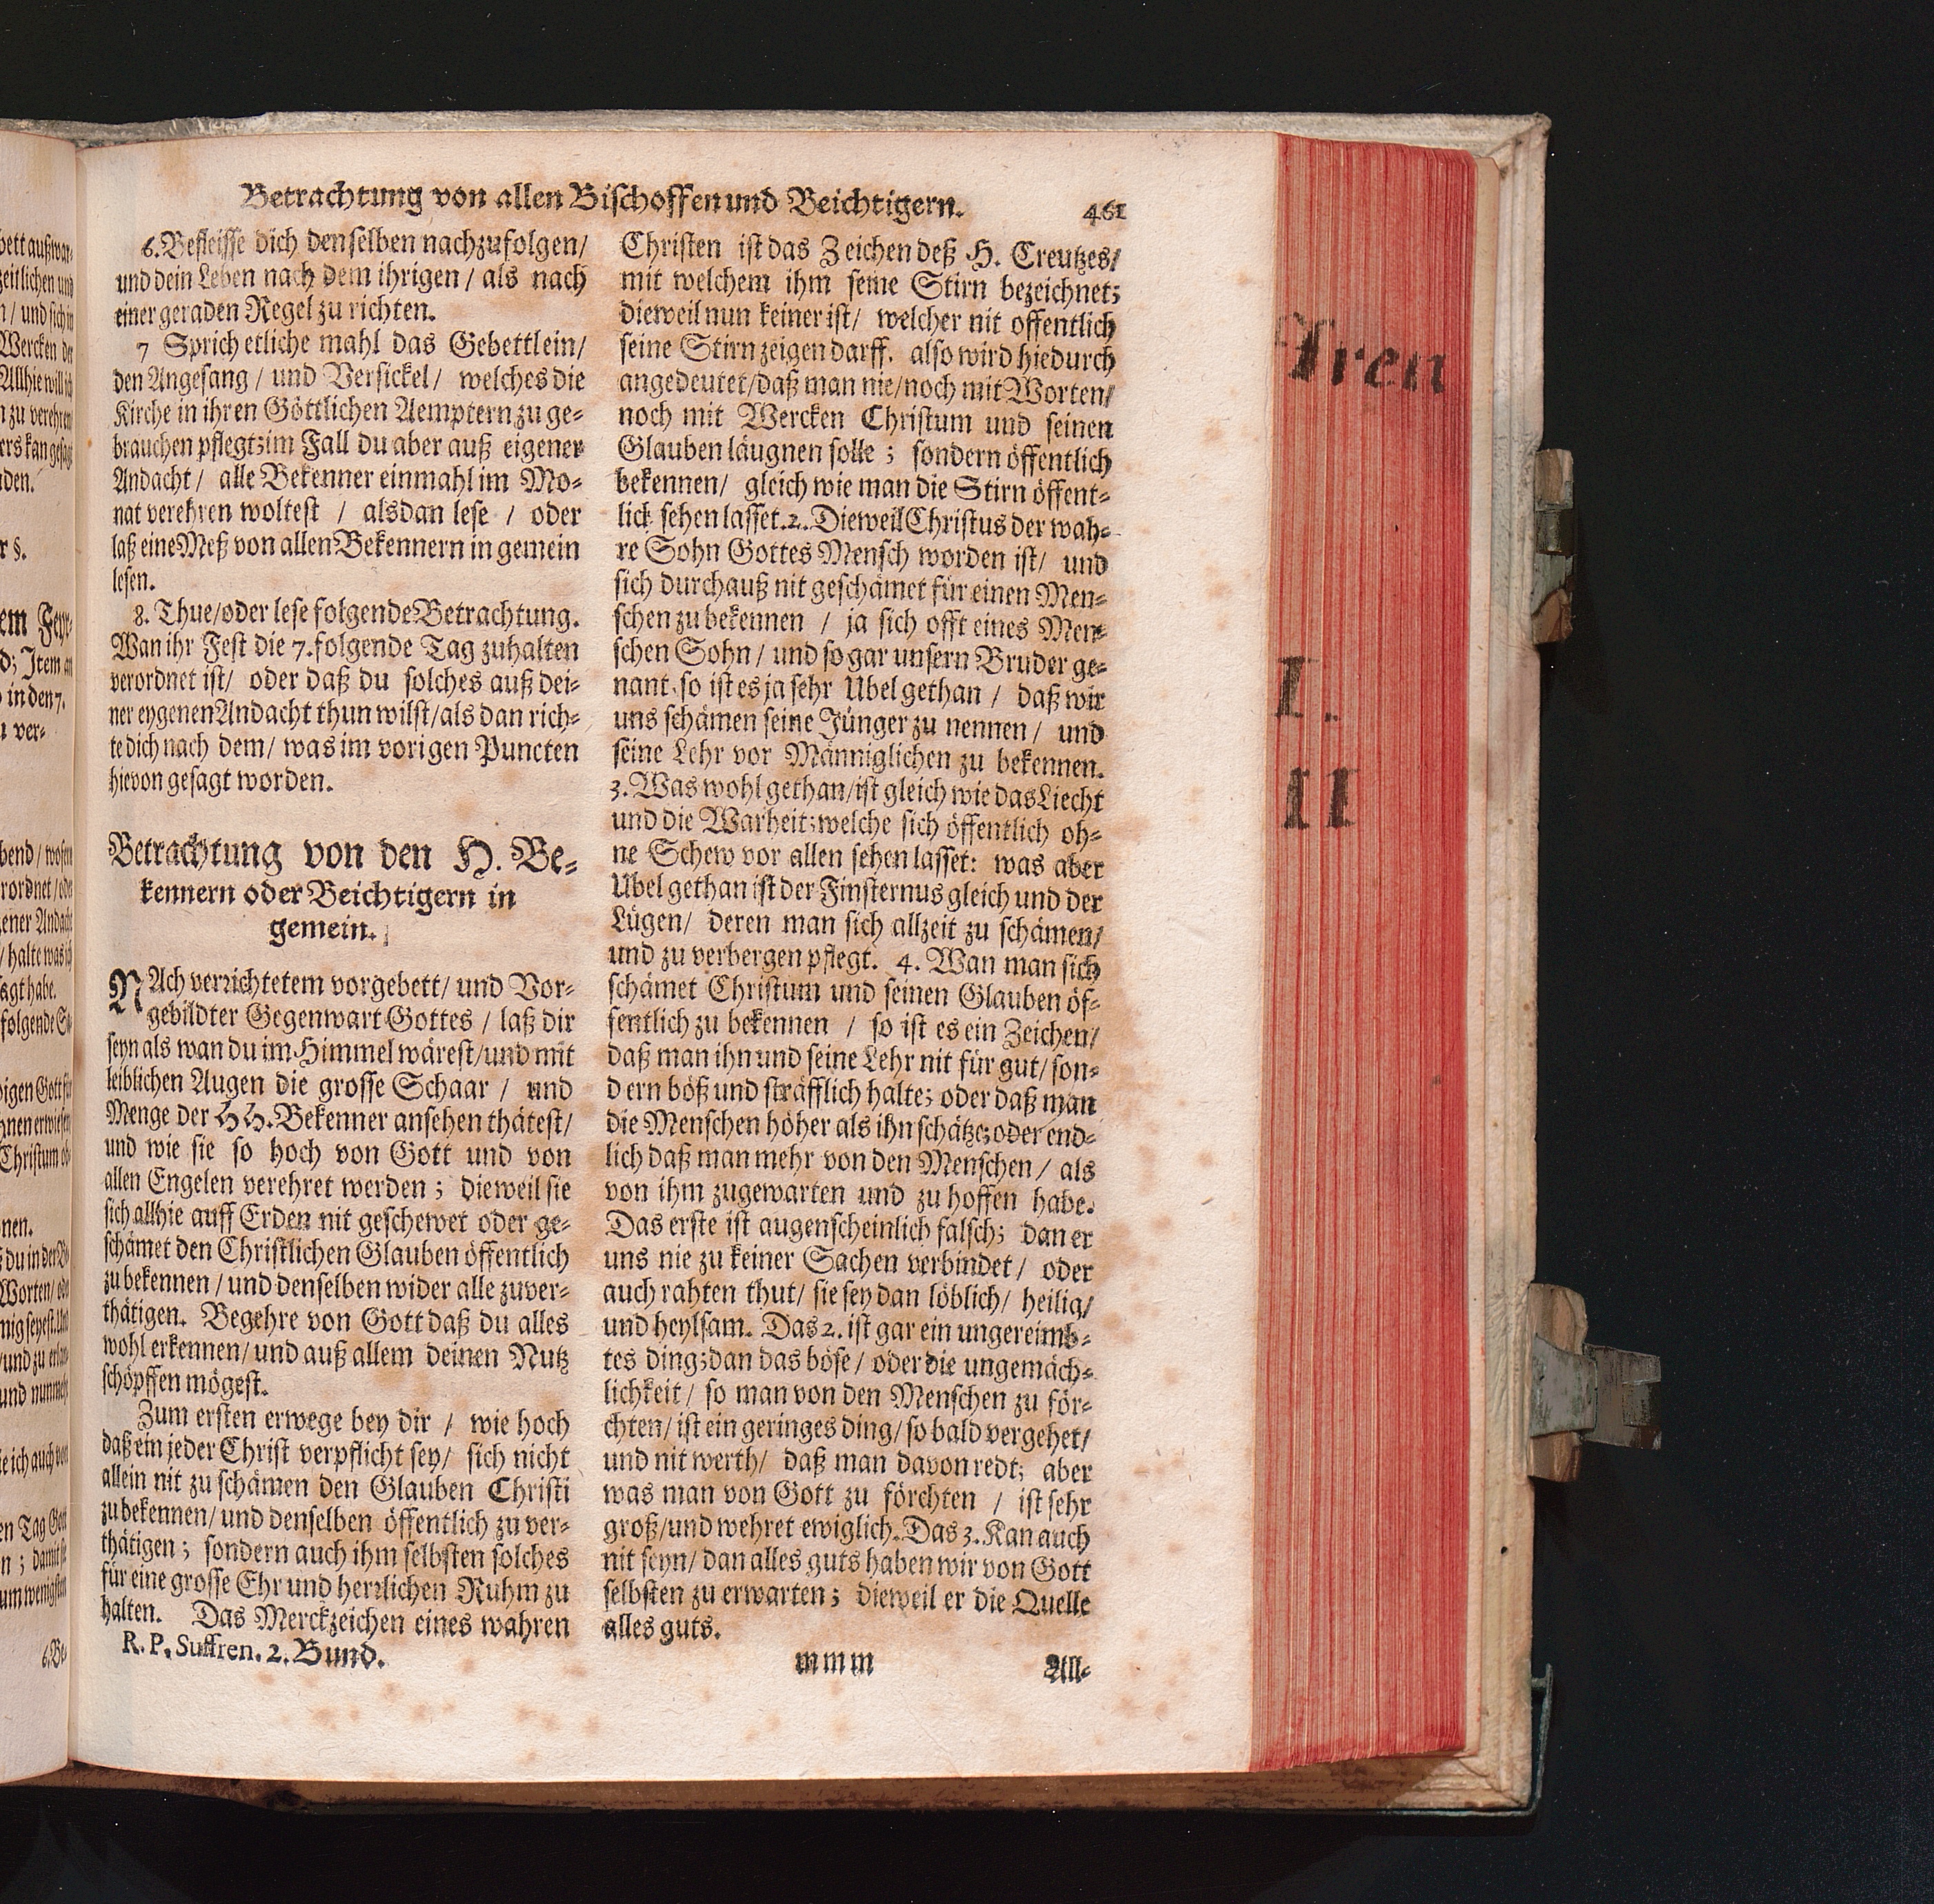 Betrachtung von allen Bischoffen und Beichtigern. 461
6. Befleisse dich denselben nachzufolgen/
und dein Leben nach dem ihrigen / als nach
einer geraden Regel zu richten.
7 Sprich etliche mahl das Gebettlein/
den Angesang / und Versickel / welches die
Kirche in ihren Göttlichen Aemptern zu ge-
brauchen pflegt; im Fall du aber auß eigener
Andacht / alle Bekenner einmahl im Mo-
nat verehren woltest / alsdan lese / oder
laß eine Meß von allen Bekennern in gemein
lesen.
8. Thue/oder lese folgende Betrachtung.
Wan ihr Fest die 7. folgende Tag zuhalten
verordnet ist/ oder daß du solches auß dei-
ner eygenen Andacht thun wilst/als dan rich-
te dich nach dem/ was im vorigen Puncten
hievon gesagt worden.
Betrachtung von den H. Be-
kennern oder Beichtigern in
gemein.
NAch verrichtetem vorgebett/ und Vor-
gebildter Gegenwart Gottes / laß dir
seyn als wan du im Himmel wärest/und mit
leiblichen Augen die grosse Schaar / und
Menge der HH. Bekenner ansehen thätest/
und wie sie so hoch von Gott und von
allen Engelen verehret werden; dieweil sie
sich allhie auff Erden nit geschewet oder ge-
schämet den Christlichen Glauben öffentlich
zu bekennen / und denselben wider alle zuver-
thätigen. Begehre von Gott daß du alles
wohl erkennen/ und auß allem deinen Nutz
schöpffen mögest.
Zum ersten erwege bey dir / wie hoch
daß ein jeder Christ verpflicht sey/ sich nicht
allein nit zu schämen den Glauben Christi
zu bekennen/ und denselben öffentlich zu ver-
thätigen; sondern auch ihm selbsten solches
für eine grosse Ehr und herrlichen Ruhm zu
halten. Das Merckzeichen eines wahren
R. P. Suffren. 2. Bund.
Christen ist das Zeichen deß H. Creutzes/
mit welchem ihm seine Stirn bezeichnet;
dieweil nun keiner ist/ welcher nit offentlich
seine Stirn zeigen darff. also wird hiedurch
angedeutet/daß man nie/noch mit Worten/
noch mit Wercken Christum und seinen
Glauben läugnen solle; sondern öffentlich
bekennen/ gleich wie man die Stirn öffent-
lich sehen lasset. 2. Dieweil Christus der wah-
re Sohn Gottes Mensch worden ist/ und
sich durchauß nit geschämet für einen Men-
schen zu bekennen / ja sich offt eines Men-
schen Sohn / und so gar unsern Bruder ge-
nant. so ist es ja sehr Ubel gethan / daß wir
uns schämen seine Jünger zu nennen / und
seine Lehr vor Männiglichen zu bekennen.
3. Was wohl gethan/ist gleich wie das Liecht
und die Warheit; welche sich öffentlich oh-
ne Schew vor allen sehen lasset: was aber
Ubel gethan ist der Finsternus gleich und der
Lügen/ deren man sich allzeit zu schämen/
und zu verbergen pflegt. 4. Wan man sich
schämet Christum und seinen Glauben öf-
fentlich zu bekennen / so ist es ein Zeichen/
daß man ihn und seine Lehr nit für gut/ son-
dern böß und sträfflich halte; oder daß man
die Menschen höher als ihn schätze; oder end-
lich daß man mehr von den Menschen / als
von ihm zugewarten und zu hoffen habe.
Das erste ist augenscheinlich falsch; dan er
uns nie zu keiner Sachen verbindet / oder
auch rahten thut/ sie sey dan löblich/ heilig/
und heylsam. Das 2. ist gar ein ungereimb-
tes ding; dan das böse / oder die ungemäch-
lichkeit / so man von den Menschen zu för-
chten/ ist ein geringes ding/ so bald vergehet/
und nit werth/ daß man davon redt; aber
was man von Gott zu förchten / ist sehr
groß/und wehret ewiglich. Das 3. Kan auch
nit seyn/ dan alles guts haben wir von Gott
selbsten zu erwarten; dieweil er die Quelle
alles guts.
mmm All-
I.
II